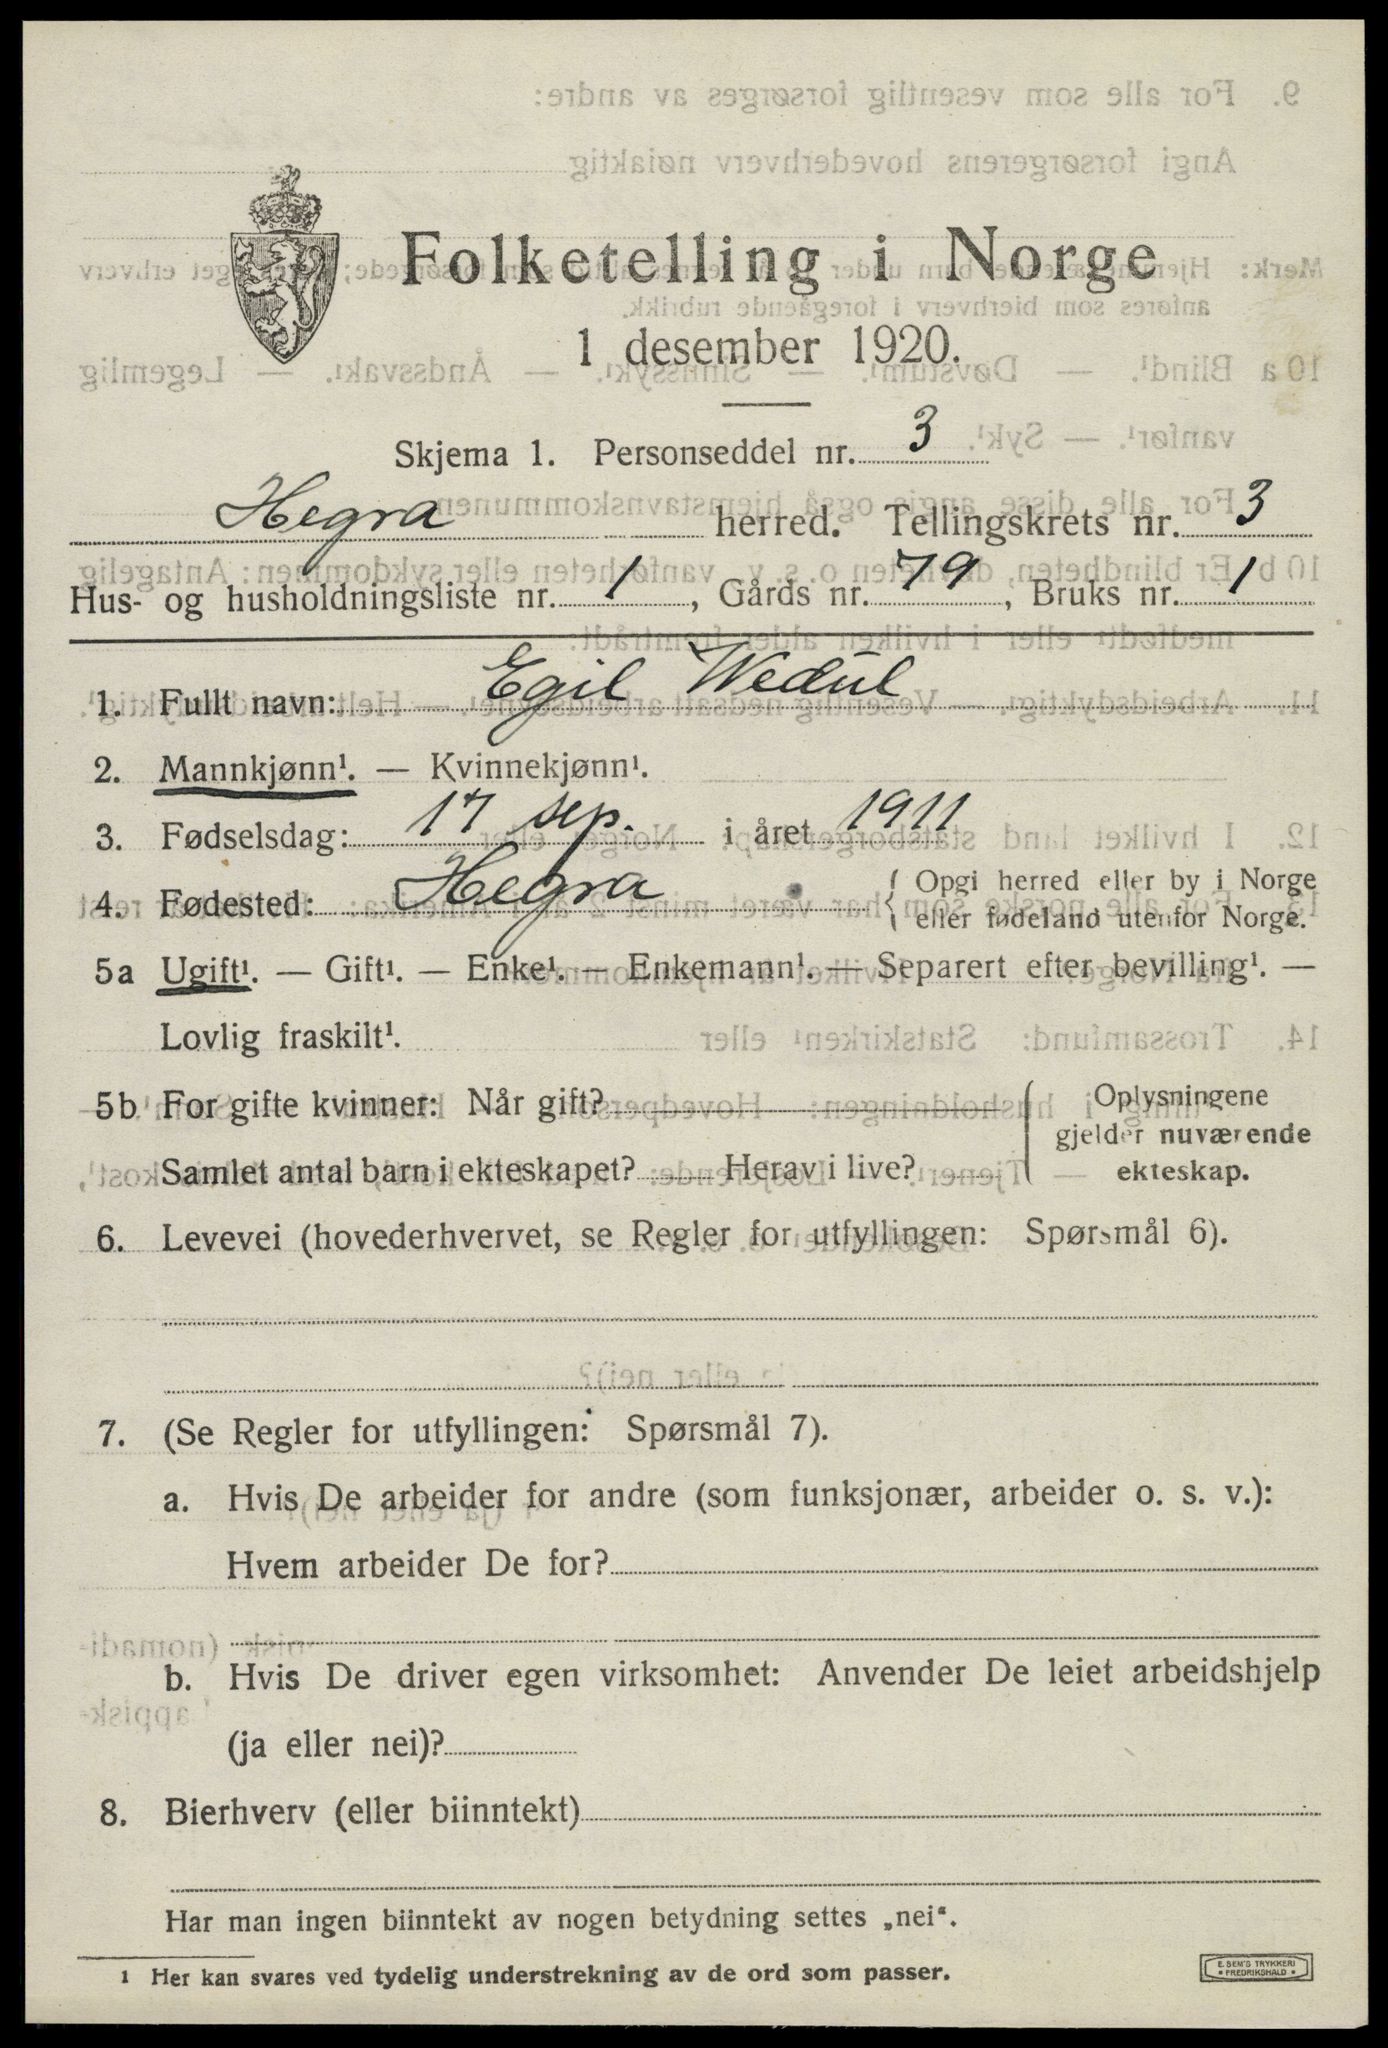 Folketelling i Norge
1 desember 1920.
Skjema 1. Personseddel nr. 3
Hegra herred. Tellingskrets nr. 3
Hus- og husholdningsliste nr. 1, Gårds nr. 79, Bruks nr. 1
1. Fullt navn: Egil Wedul
2. Mannkjønn¹. — Kvinnekjønn¹.
3. Fødselsdag: 17 sep. i året 1911
4. Fødested: Hegra { Opgi herred eller by i Norge
eller fødeland utenfor Norge.
5a Ugift¹. — Gift¹. — Enke¹. — Enkemann¹. — Separert efter bevilling¹. —
Lovlig fraskilt¹.
5b For gifte kvinner: Når gift?
Samlet antal barn i ekteskapet? Herav i live?
Oplysningene
gjelder nuværende
ekteskap.
6. Levevei (hovederhvervet, se Regler for utfyllingen: Spørsmål 6).
7. (Se Regler for utfyllingen: Spørsmål 7).
a. Hvis De arbeider for andre (som funksjonær, arbeider o. s. v.):
Hvem arbeider De for?
b. Hvis De driver egen virksomhet: Anvender De leiet arbeidshjelp
(ja eller nei)?
8. Bierhverv (eller biinntekt)
Har man ingen biinntekt av nogen betydning settes „nei“.
¹ Her kan svares ved tydelig understrekning av de ord som passer.
E. SEM'S TRYKKERI
• FREDRIKSHALD •